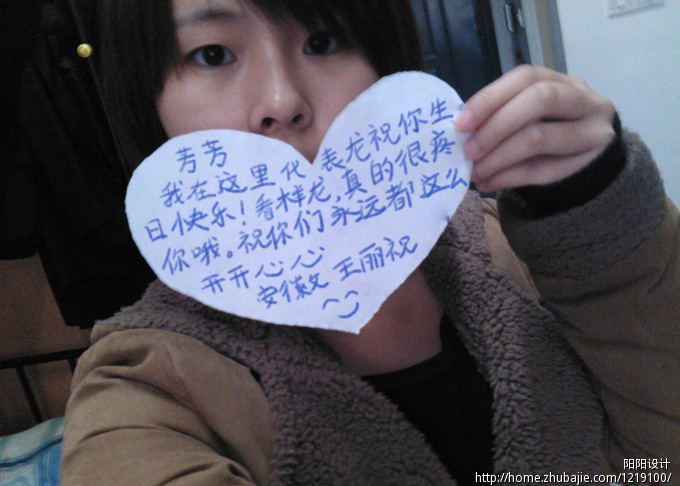 芳芳
我在这里代表龙祝你生
日快乐!看样龙,真的很疼
你哦。祝你们永远都这么
开开心心
安徽 王丽祝
阳阳设计
http://home.zhubajie.com/1219100/